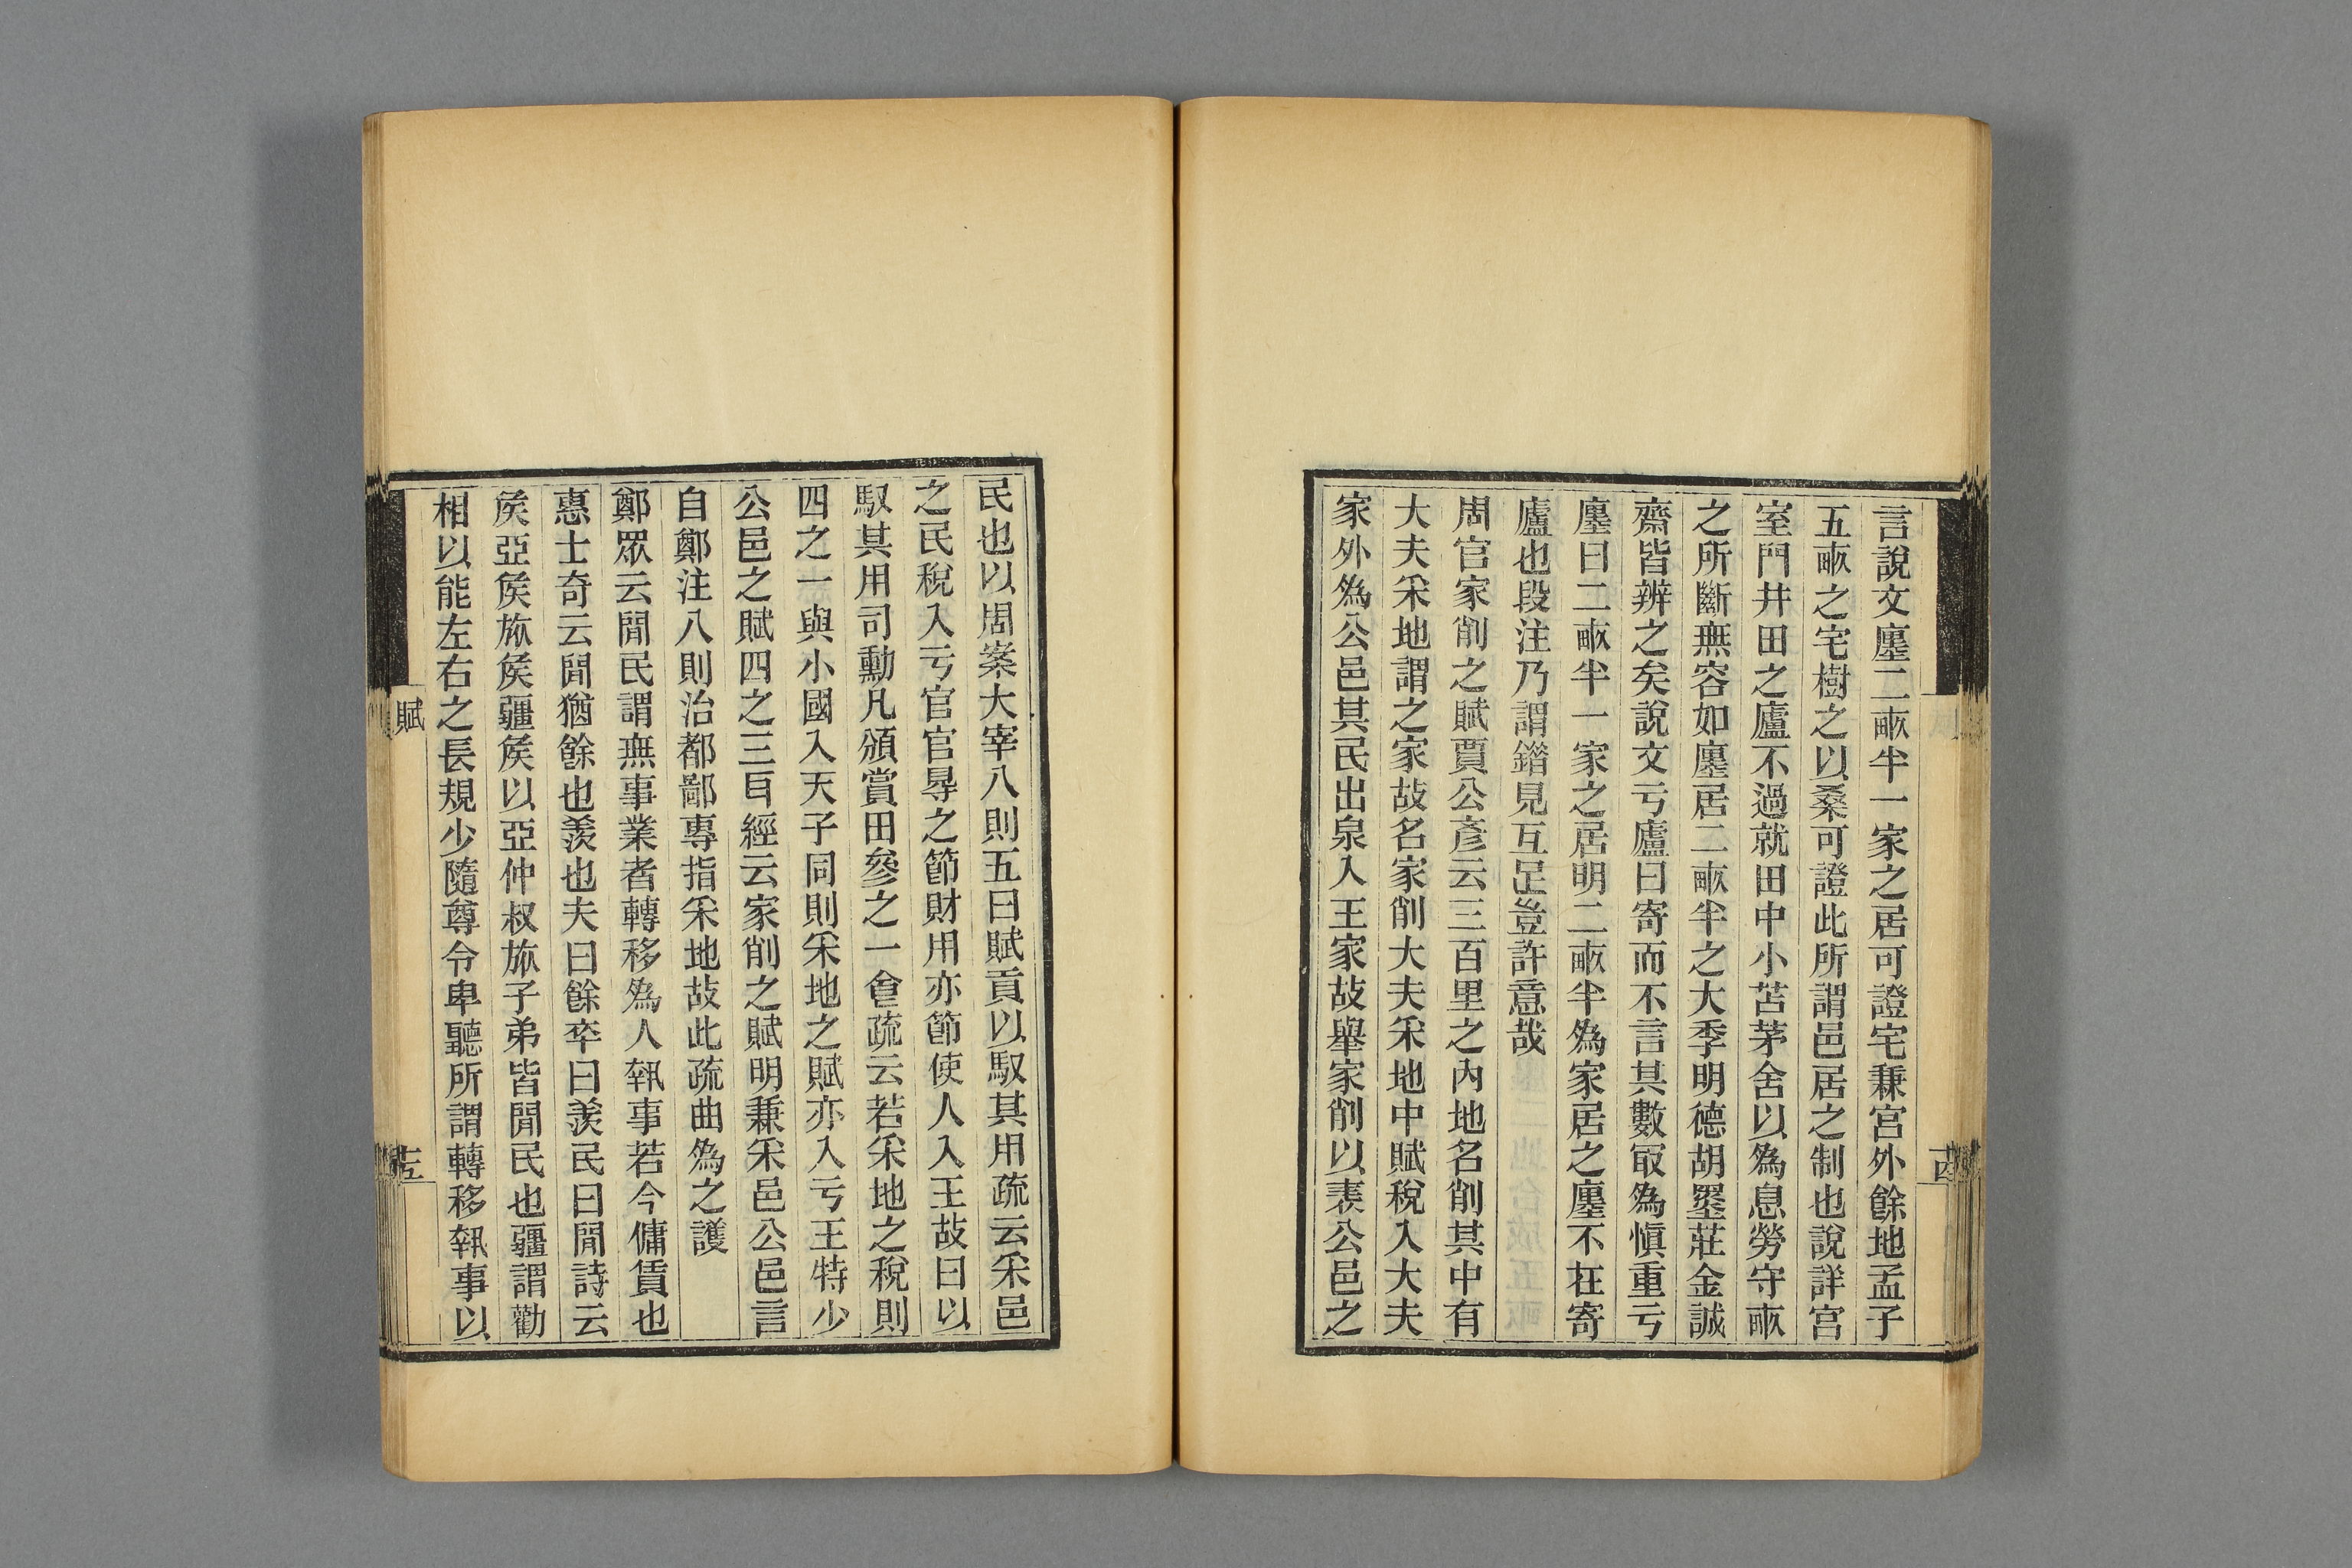 言說文廛二畞半一家之居可證宅兼宮外餘地孟子
五畞之宅樹之以桑可證此所謂邑居之制也說詳宮
室門井田之廬不過就田中小苫茅舍以為息勞守畞
之所斷無容如廛居二畞半之大季明德胡墨莊金誠
齋皆辨之矣說文亏廬曰寄而不言其數冣為愼重亏
廛曰二畞半一家之居明二畞半為家居之廛不在寄
廬也段注乃謂鍇見互足豈許意哉
周官家削之賦賈公彥云三百里之內地名削其中有
大夫采地謂之家故名家削大夫采地中賦稅入大夫
家外為公邑其民出泉入王家故舉家削以表公邑之
民也以周案大宰八則五曰賦貢以馭其用疏云采邑
之民稅入亏官官㝵之節財用亦節使人入王故曰以
馭其用司勳凡頒賞田參之一㑹疏云若采地之稅則
四之一與小國入天子同則采地之賦亦入亏王特少
公邑之賦四之三耳經云家削之賦明兼采邑公邑言
自鄭注八則治都鄙專指采地故此疏曲為之護
鄭眾云閒民謂無事業者轉移為人執事若今傭賃也
惠士奇云閒猶餘也羨也夫曰餘卒曰羨民曰閒詩云
矦亞矦旅矦疆矦以亞仲叔旅子弟皆閒民也疆謂勸
相以能左右之長規少隨尊令卑聽所謂轉移執事以
賦
十五
十四